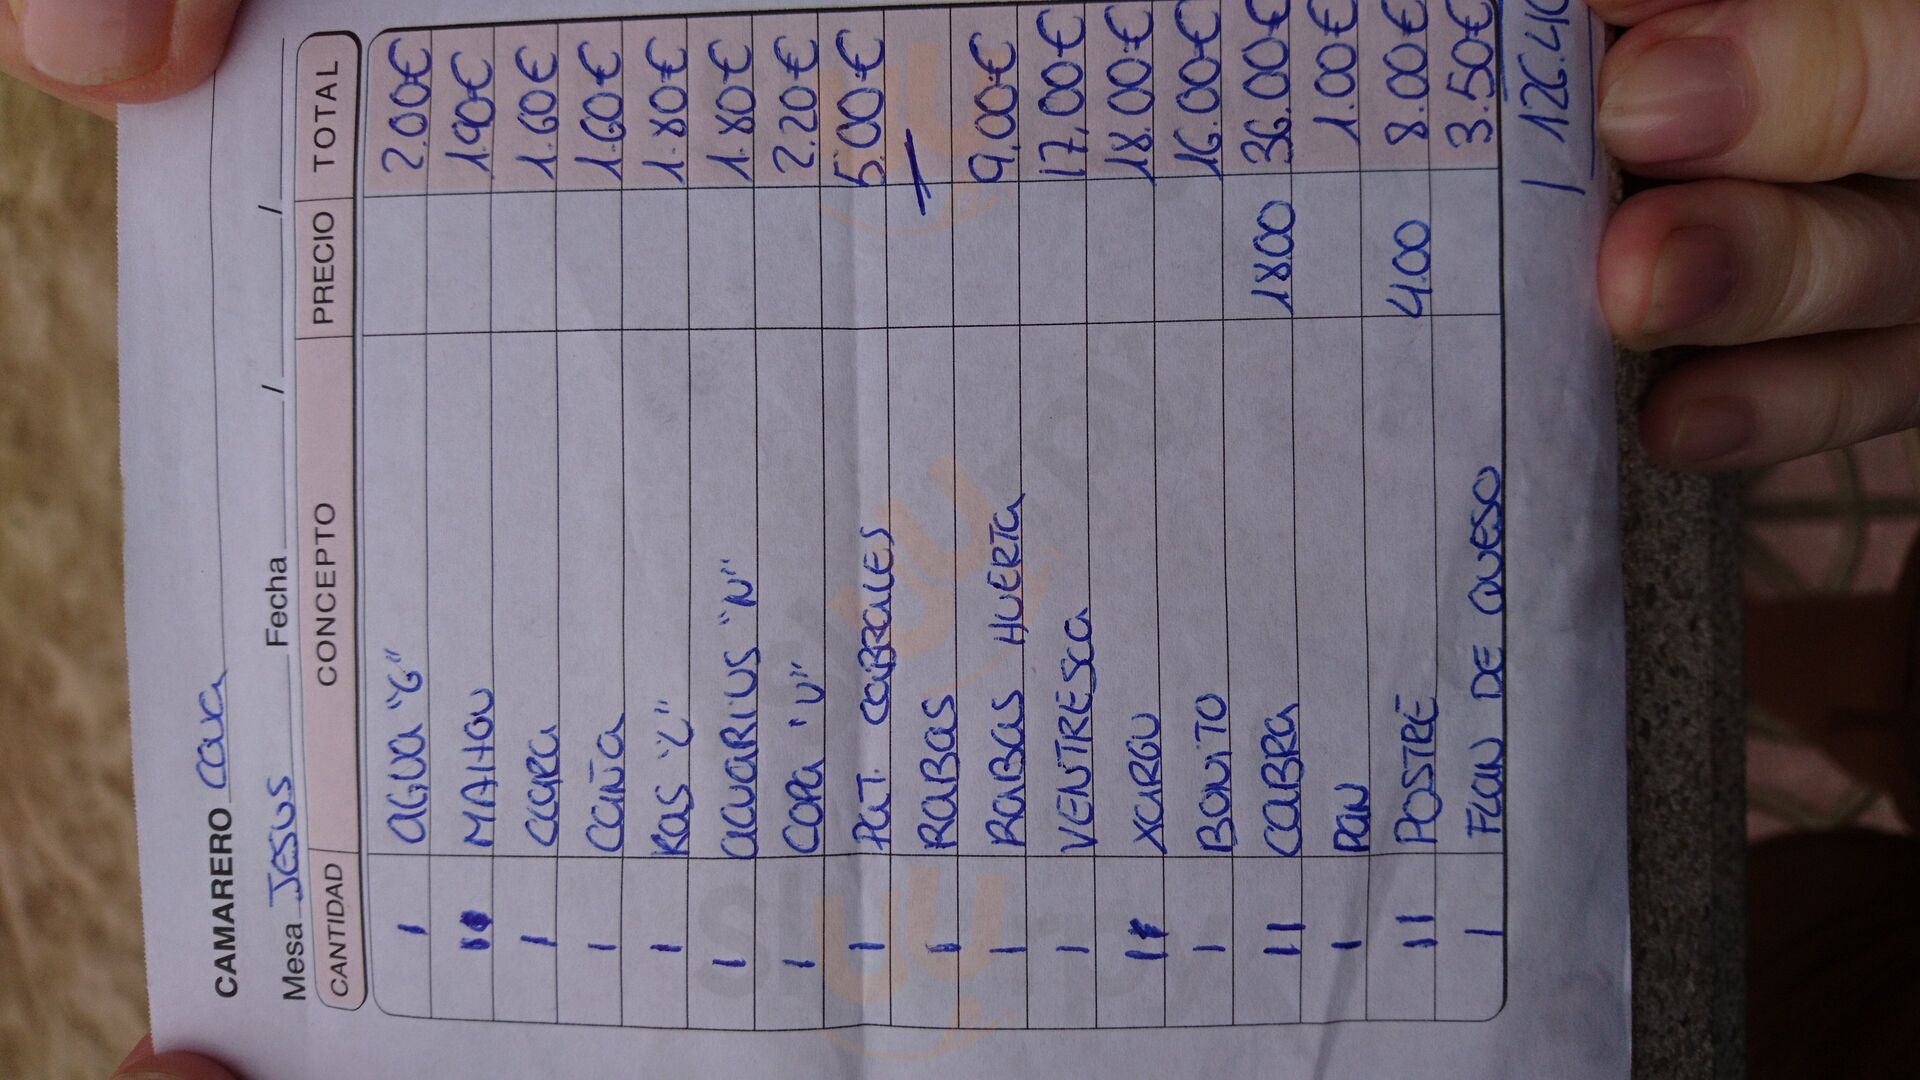 CAMARERO Cava
Mesa Jesus Fecha / /
CANTIDAD CONCEPTO PRECIO TOTAL
1 AGUA "G" 2.00€
MAHOU 1.90€
1 CLARA 1.60€
1 CAÑA 1.60€
1 RAS "L" 1.80€
1 AQUARIUS "N" 1.80€
1 COPA "V" 2.20€
1 PAT. CABRALES 5.00€
1 RABAS
1 RABAS HUERTA 9,00€
1 VENTRESCA 17,00€
XARGU 18.00€
1 BONITO 16.00€
11 CABRA 1800 36.00€
1 PAN 1.00€
11 POSTRE 4.00 8.00€
1 FLAN DE QUESO 3.50€
126.40